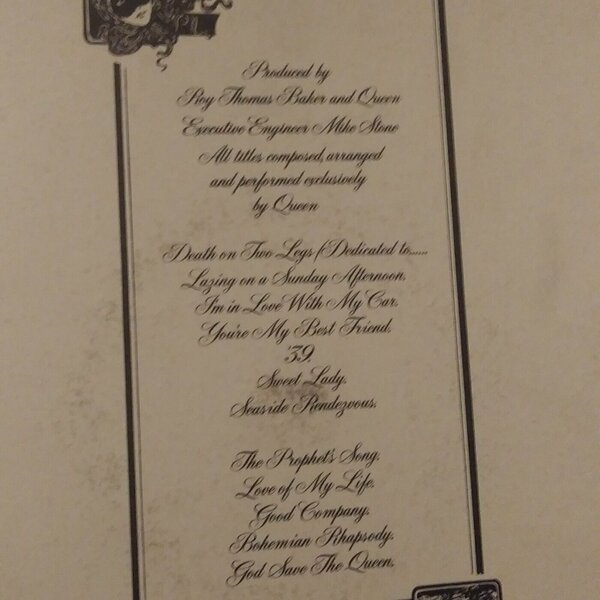 Produced by
Roy Thomas Baker and Queen
Executive Engineer Mike Stone
All titles composed, arranged
and performed exclusively
by Queen
Death on Two Legs (Dedicated to......
Lazing on a Sunday Afternoon.
I'm in Love With My Car.
You're My Best Friend.
'39.
Sweet Lady.
Seaside Rendezvous.
The Prophet's Song.
Love of My Life.
Good Company.
Bohemian Rhapsody.
God Save The Queen.